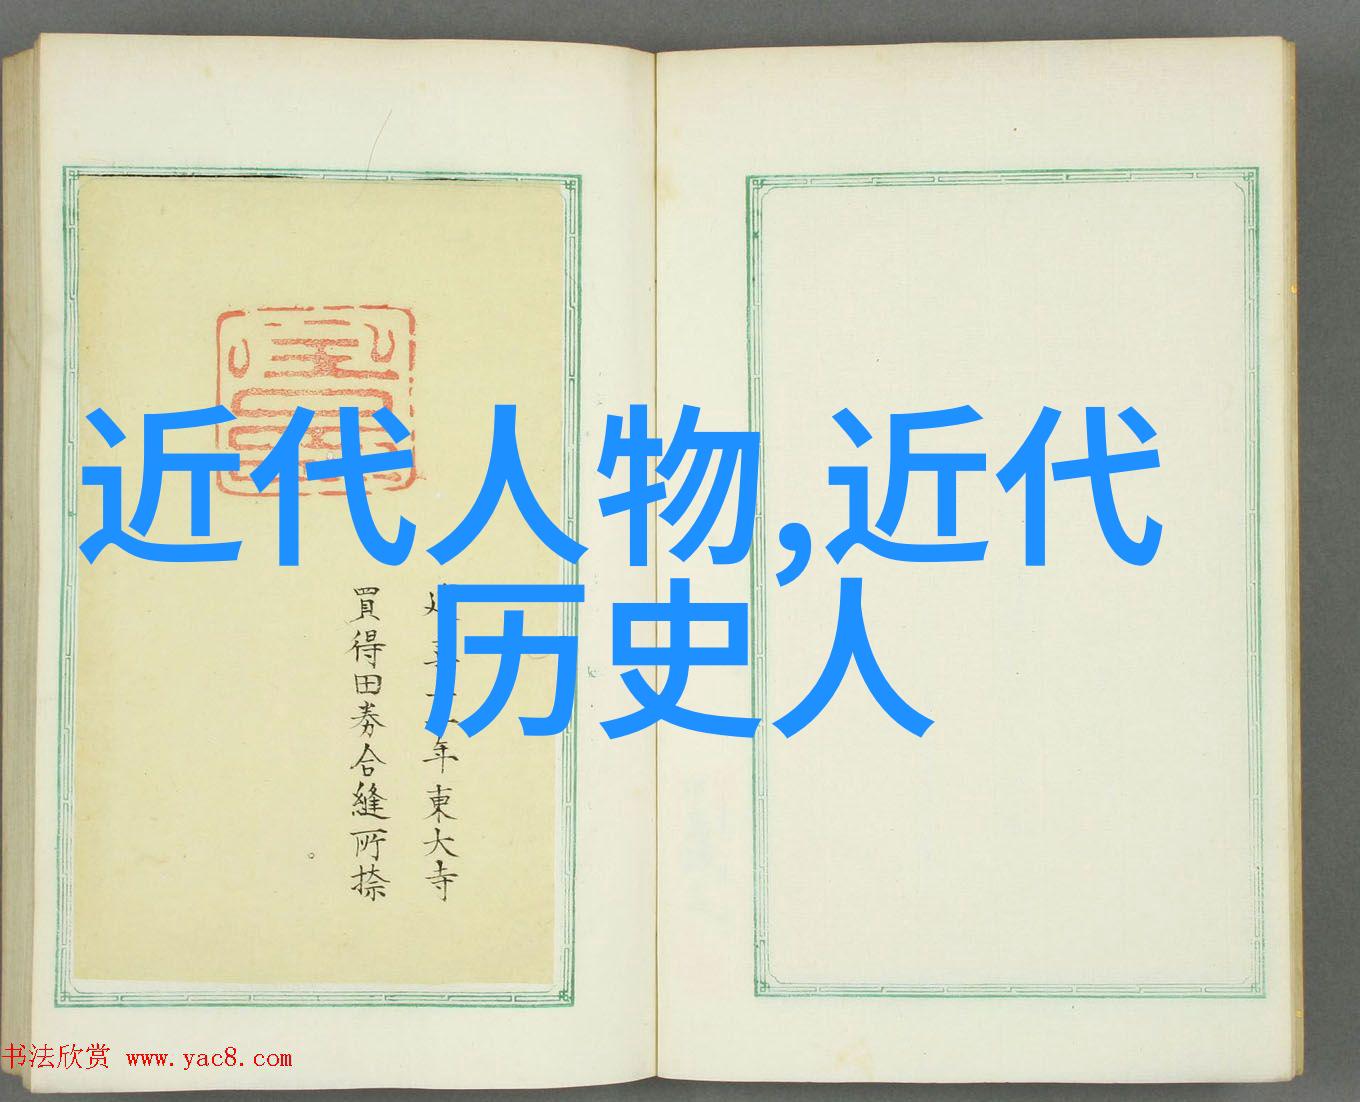 近代人物,近代
历史人
年東大寺
買得田券合縫所捺
书法欣赏 www.yac8.com